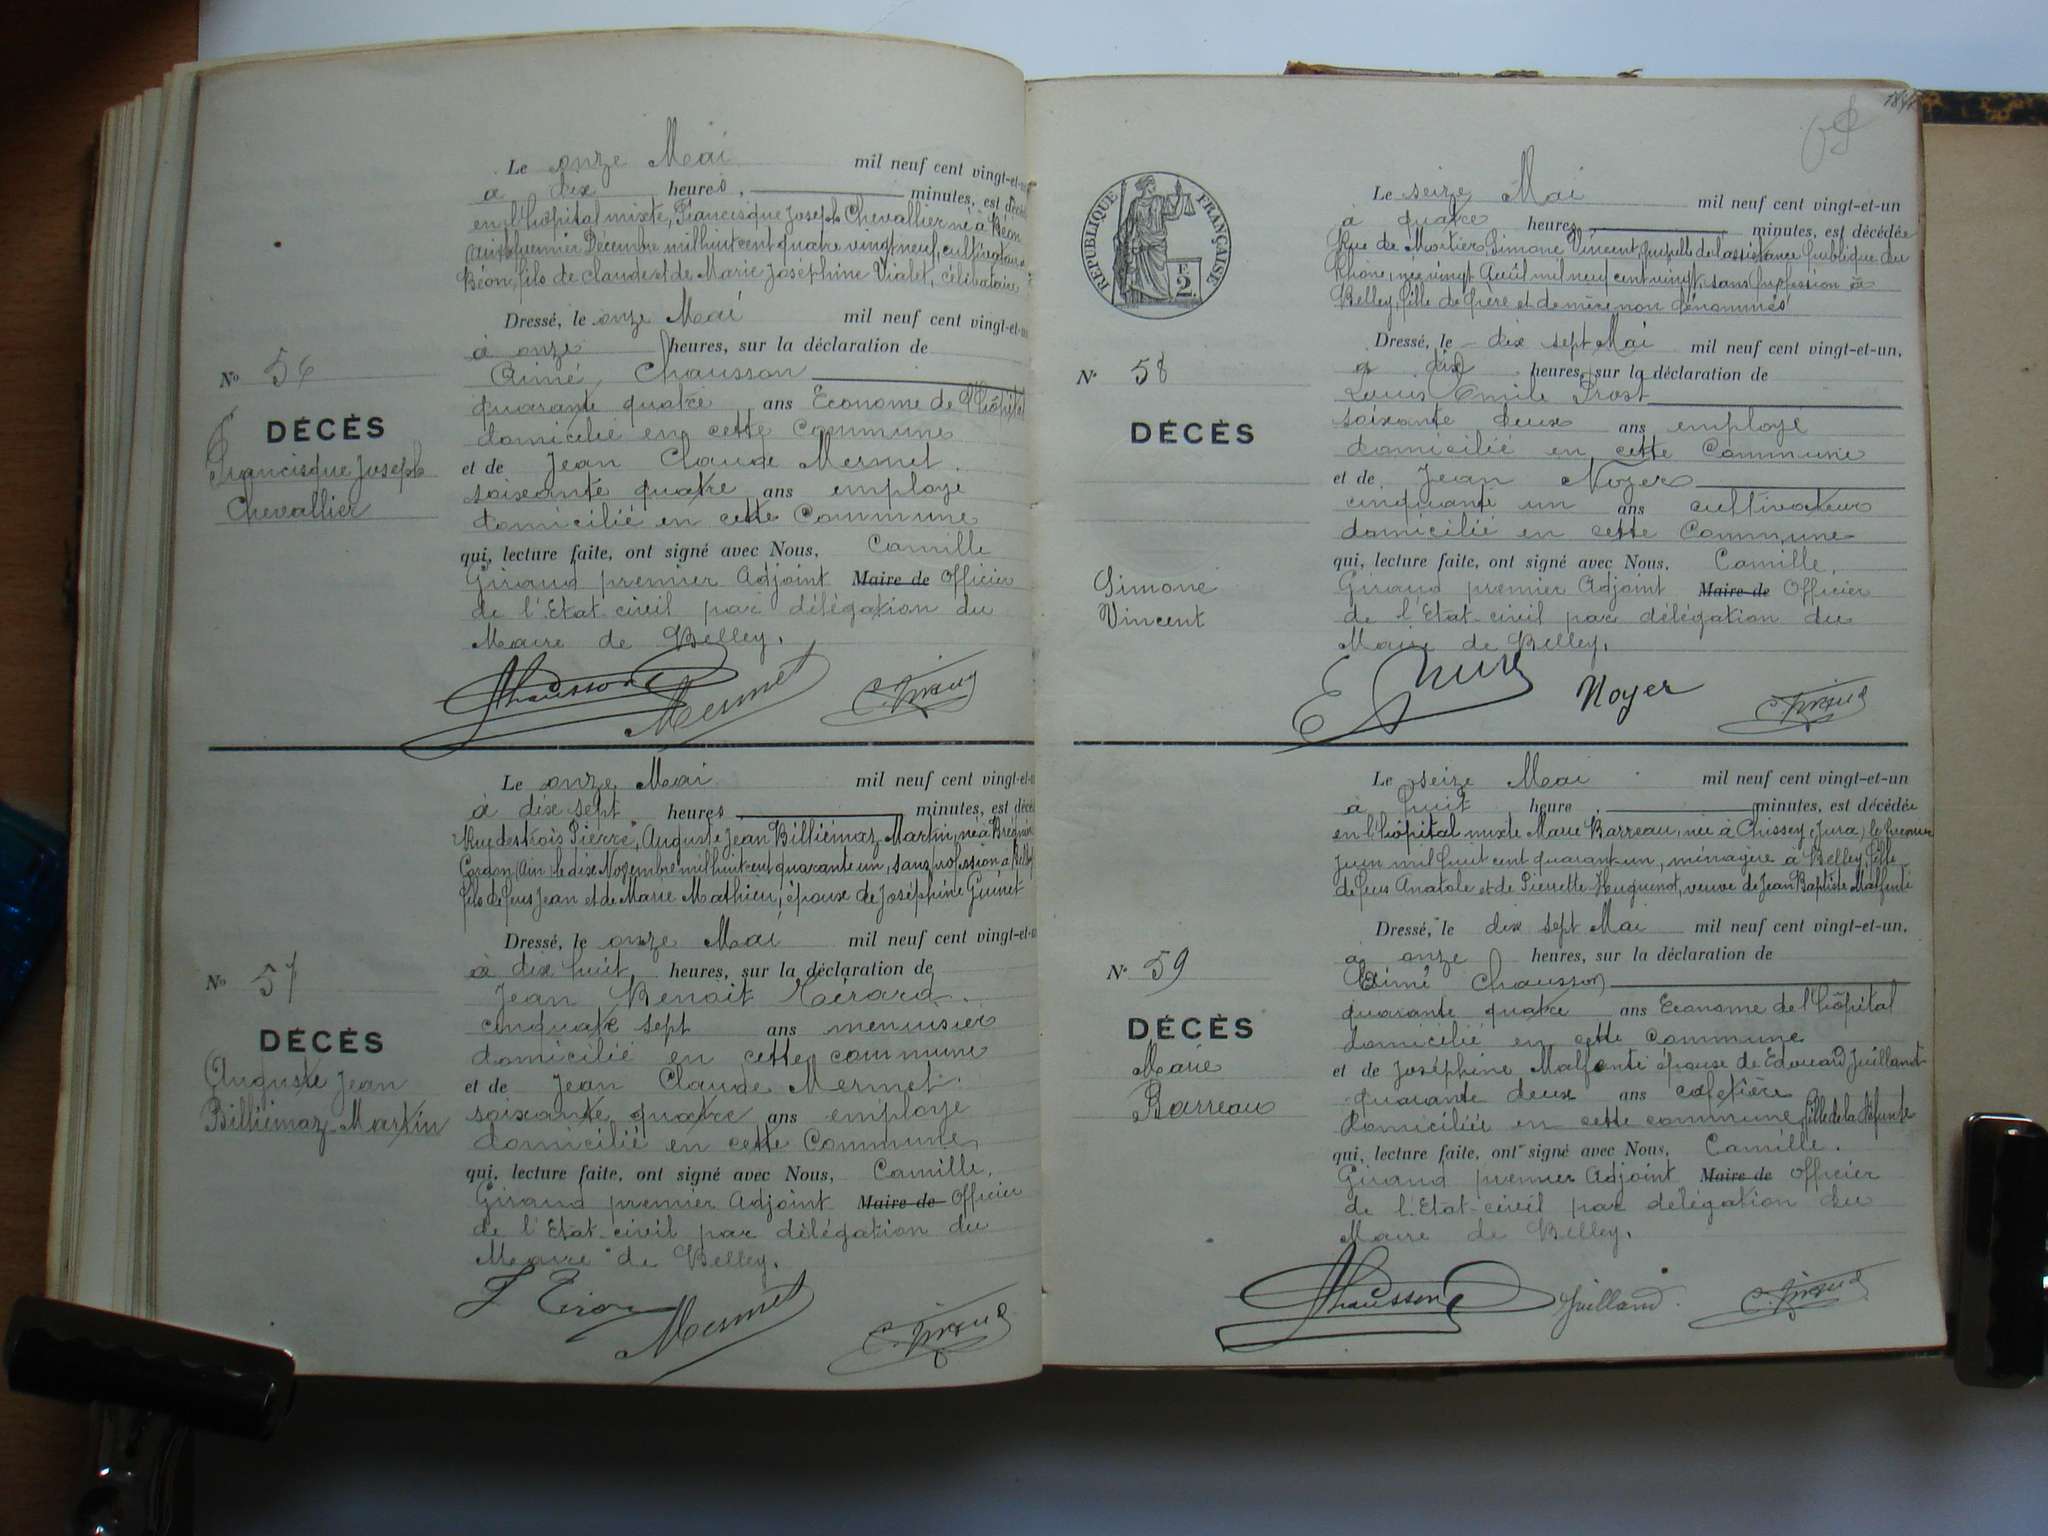 Le onze Mai mil neuf cent vingt-et-un
à dix heures, minutes, est décédé
en l'hôpital mixte, Francisque Joseph Chevallier né à Béon
Ain premier Décembre mil huit cent quatre vingt neuf, cultivateur à
Béon, fils de Claude et de Marie Joséphine Vialet, célibataire
Dressé, le onze Mai mil neuf cent vingt-et-un
à onze heures, sur la déclaration de
Aimé Chausson
quarante quatre ans Econome de l'hôpital
domicilié en cette Commune
et de Jean Claude Mermet
soixante quatre ans employé
domicilié en cette Commune
qui, lecture faite, ont signé avec Nous, Camille
Giraud premier Adjoint Maire de Officier
de l'Etat-civil par délégation du
Maire de Belley.
Chausson Mermet C. Giraud
No 56
DÉCÈS
Francisque Joseph
Chevallier
Le onze Mai mil neuf cent vingt-et-un
à dix sept heures minutes, est décédé
Rue des trois Pierre, Auguste Jean Billiémaz-Martin, né à Brégnier
Cordon (Ain) le dix Novembre mil huit cent quarante un, sans profession à Belley
fils de feus Jean et de Marie Mathieu, époux de Joséphine Guinet
Dressé, le onze Mai mil neuf cent vingt-et-un
à dix huit heures, sur la déclaration de
Jean Benoit
cinquate sept ans menuisier
domicilié en cette commune
et de Jean Claude Mermet
soixante quatre ans employé
domicilié en cette Commune
qui, lecture faite, ont signé avec Nous, Camille
Giraud premier Adjoint Maire de Officier
de l'Etat-civil par délégation du
Maire de Belley.
Mermet C. Giraud
No 57
DÉCÈS
Auguste Jean
Billiémaz-Martin
RÉPUBLIQUE FRANÇAISE
2
Le seize Mai mil neuf cent vingt-et-un
à quatre heures, minutes, est décédée
Rue de Mortier, Simone Vincent, pupille de l'assistance publique du
Rhône, née vingt Avril mil neuf cent vingt, sans profession à
Belley, fille de père et de mère non dénommés
Dressé, le dix sept Mai mil neuf cent vingt-et-un,
à dix heures, sur la déclaration de
Louis Emile Prost
soixante deux ans employé
domicilié en cette Commune
et de Jean Noyer
cinquante un ans cultivateur
domicilié en cette Commune
qui, lecture faite, ont signé avec Nous, Camille
Giraud premier Adjoint Maire de Officier
de l'Etat-civil par délégation du
Maire de Belley.
Noyer C. Giraud
No 58
DÉCÈS
Simone
Vincent
Le seize Mai mil neuf cent vingt-et-un
à huit heure, minutes, est décédée
en l'hôpital mixte Marie Barreau, née à Chissey (Jura) le premier
Juin mil huit cent quarante un, ménagère à Belley, fille
de feus Anatole et de Pierrette Huguenot, veuve de Jean Baptiste Malfonti
Dressé, le dix sept Mai mil neuf cent vingt-et-un,
à onze heures, sur la déclaration de
Aimé Chausson
quarante quatre ans Econome de l'hôpital
domicilié en cette commune
et de Joséphine Malfonti épouse de Edouard Juilland
quarante deux ans cafetière
domiciliée en cette commune, fille de la défunte
qui, lecture faite, ont signé avec Nous, Camille
Giraud premier Adjoint Maire de Officier
de l'Etat-civil par délégation du
Maire de Belley.
Chausson Juilland C. Giraud
No 59
DÉCÈS
Marie
Barreau